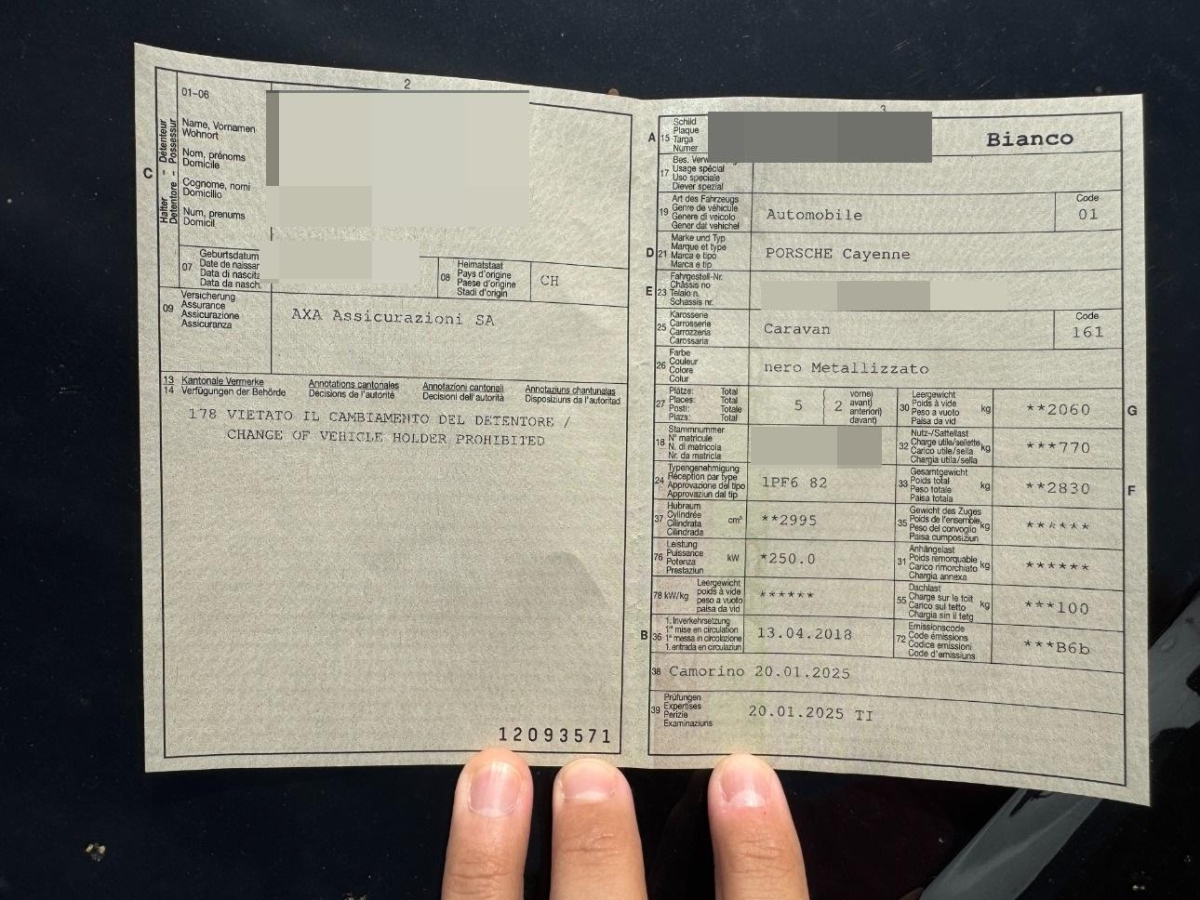 2
01-06
Name, Vornamen
Wohnort
Nom, prénoms
Domicile
Cognome, nomi
Domicilio
Num, prenums
Domicil
C
Halter - Détenteur
Detentore - Possessur
07
Geburtsdatum
Date de naissan
Data di nascita
Data da nasch.
08
Heimatstaat
Pays d'origine
Paese d'origine
Stadi d'origin
CH
09
Versicherung
Assurance
Assicurazione
Assicuranza
AXA Assicurazioni SA
13 Kantonale Vermerke
14 Verfügungen der Behörde
Annotations cantonales
Décisions de l'autorité
Annotazioni cantonali
Decisioni dell'autorità
Annotaziuns chantunalas
Disposiziuns da l'autoritad
178 VIETATO IL CAMBIAMENTO DEL DETENTORE /
CHANGE OF VEHICLE HOLDER PROHIBITED
12093571
3
A 15
Schild
Plaque
Targa
Numer
Bianco
17
Bes. Verw
Usage spécial
Uso speciale
Diever spezial
19
Art des Fahrzeugs
Genre de véhicule
Genere di veicolo
Gener dal vehichel
Automobile
Code
01
D 21
Marke und Typ
Marque et type
Marca e tipo
Marca e tip
PORSCHE Cayenne
E 23
Fahrgestell-Nr.
Châssis no
Telaio n.
Schassis nr.
25
Karosserie
Carrosserie
Carrozzeria
Carossaria
Caravan
Code
161
26
Farbe
Couleur
Colore
Colur
nero Metallizzato
27
Plätze: Total
Places: Total
Posti: Totale
Plazs: Total
5
2
vorne)
avant)
anteriori)
davant)
30
Leergewicht
Poids à vide
Peso a vuoto
Paisa da vid
kg
**2060
G
18
Stammnummer
N° matricule
N. di matricola
Nr. da matricla
32
Nutz-/Sattellast
Charge utile/sellette
Carico utile/sella
Chargia utila/sella
kg
***770
24
Typengenehmigung
Réception par type
Approvazione del tipo
Approvaziun dal tip
1PF6 82
33
Gesamtgewicht
Poids total
Peso totale
Paisa totala
kg
**2830
F
37
Hubraum
Cylindrée
Cilindrata
Cilindrada
cm³
**2995
35
Gewicht des Zuges
Poids de l'ensemble
Peso del convoglio
Paisa cumposiziun
kg
******
76
Leistung
Puissance
Potenza
Prestaziun
kW
*250.0
31
Anhängelast
Poids remorquable
Carico rimorchiato
Chargia annexa
kg
******
78 kW/kg
Leergewicht
poids à vide
peso a vuoto
paisa da vid
******
55
Dachlast
Charge sur le toit
Carico sul tetto
Chargia sin il tetg
kg
***100
B 36
1. Inverkehrsetzung
1re mise en circulation
1a messa in circolazione
1. entrada en circulaziun
13.04.2018
72
Emissionscode
Code émissions
Codice emissioni
Code d'emissiuns
***B6b
38
Camorino 20.01.2025
39
Prüfungen
Expertises
Perizie
Examinaziuns
20.01.2025 TI